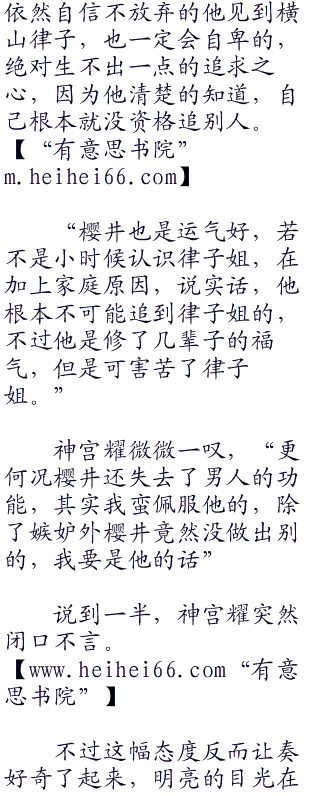 依然自信不放弃的他见到横
山律子，也一定会自卑的，
绝对生不出一点的追求之
心，因为他清楚的知道，自
己根本就没资格追别人。
【“有意思书院”
m.heihei66.com】
“樱井也是运气好，若
不是小时候认识律子姐，在
加上家庭原因，说实话，他
根本不可能追到律子姐的，
不过他是修了几辈子的福
气，但是可害苦了律子
姐。”
神宫耀微微一叹，“更
何况樱井还失去了男人的功
能，其实我蛮佩服他的，除
了嫉妒外樱井竟然没做出别
的，我要是他的话”
说到一半，神宫耀突然
闭口不言。
【www.heihei66.com“有意
思书院”】
不过这幅态度反而让奏
好奇了起来，明亮的目光在